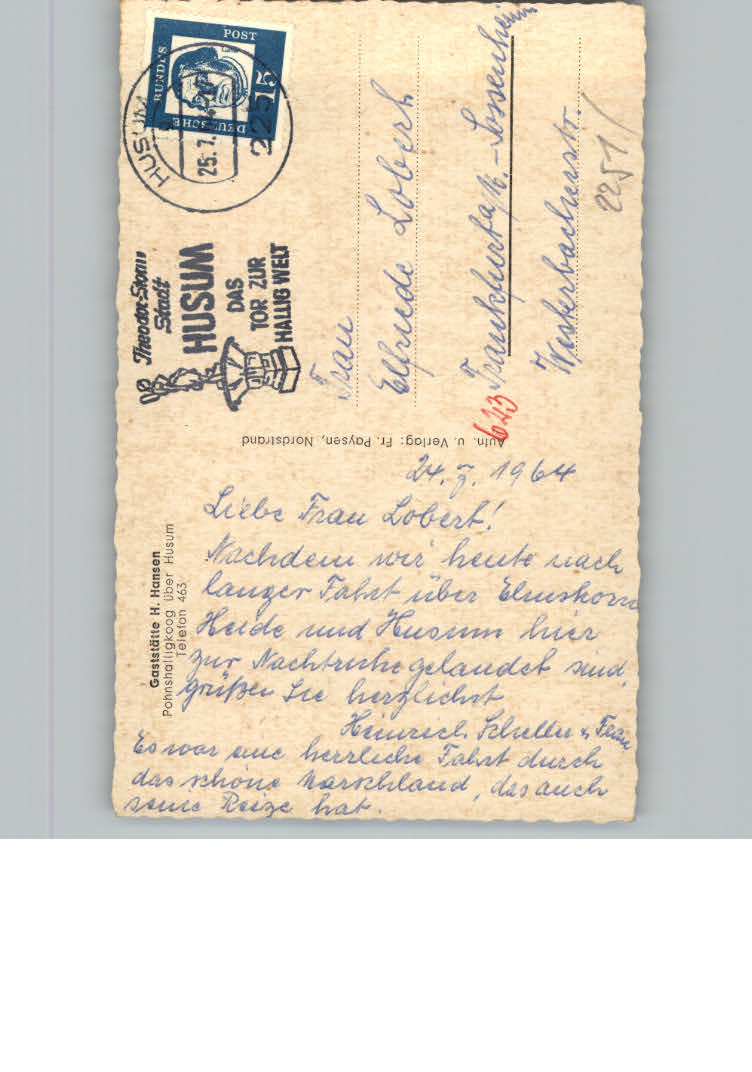 24. 7. 1964
Liebe Frau Lobert!
Nachdem wir heute nach
langer Fahrt über Elmshorn
Heide und Husum hier
zur Nachtruhe gelandet sind,
grüßen Sie herzlichst
Heinrich Scheller u. Frau
Es war eine herrliche Fahrt durch
das schöne Marschland, das auch
seine Reize hat.
Gaststätte H. Hansen
Pohnshalligkoog über Husum
Telefon 463
Aufn. u. Verlag: Fr. Paysen, Nordstrand
Theodor-Storm
Stadt
HUSUM
DAS
TOR ZUR
HALLIG WELT
HUSUM
25. 7.
2251
DEUTSCHE
BUNDES
POST
15
Frau
Elfriede Lobert
623 Frankfurt a/M.-Sossenheim
Westerbacherstr.
2251/